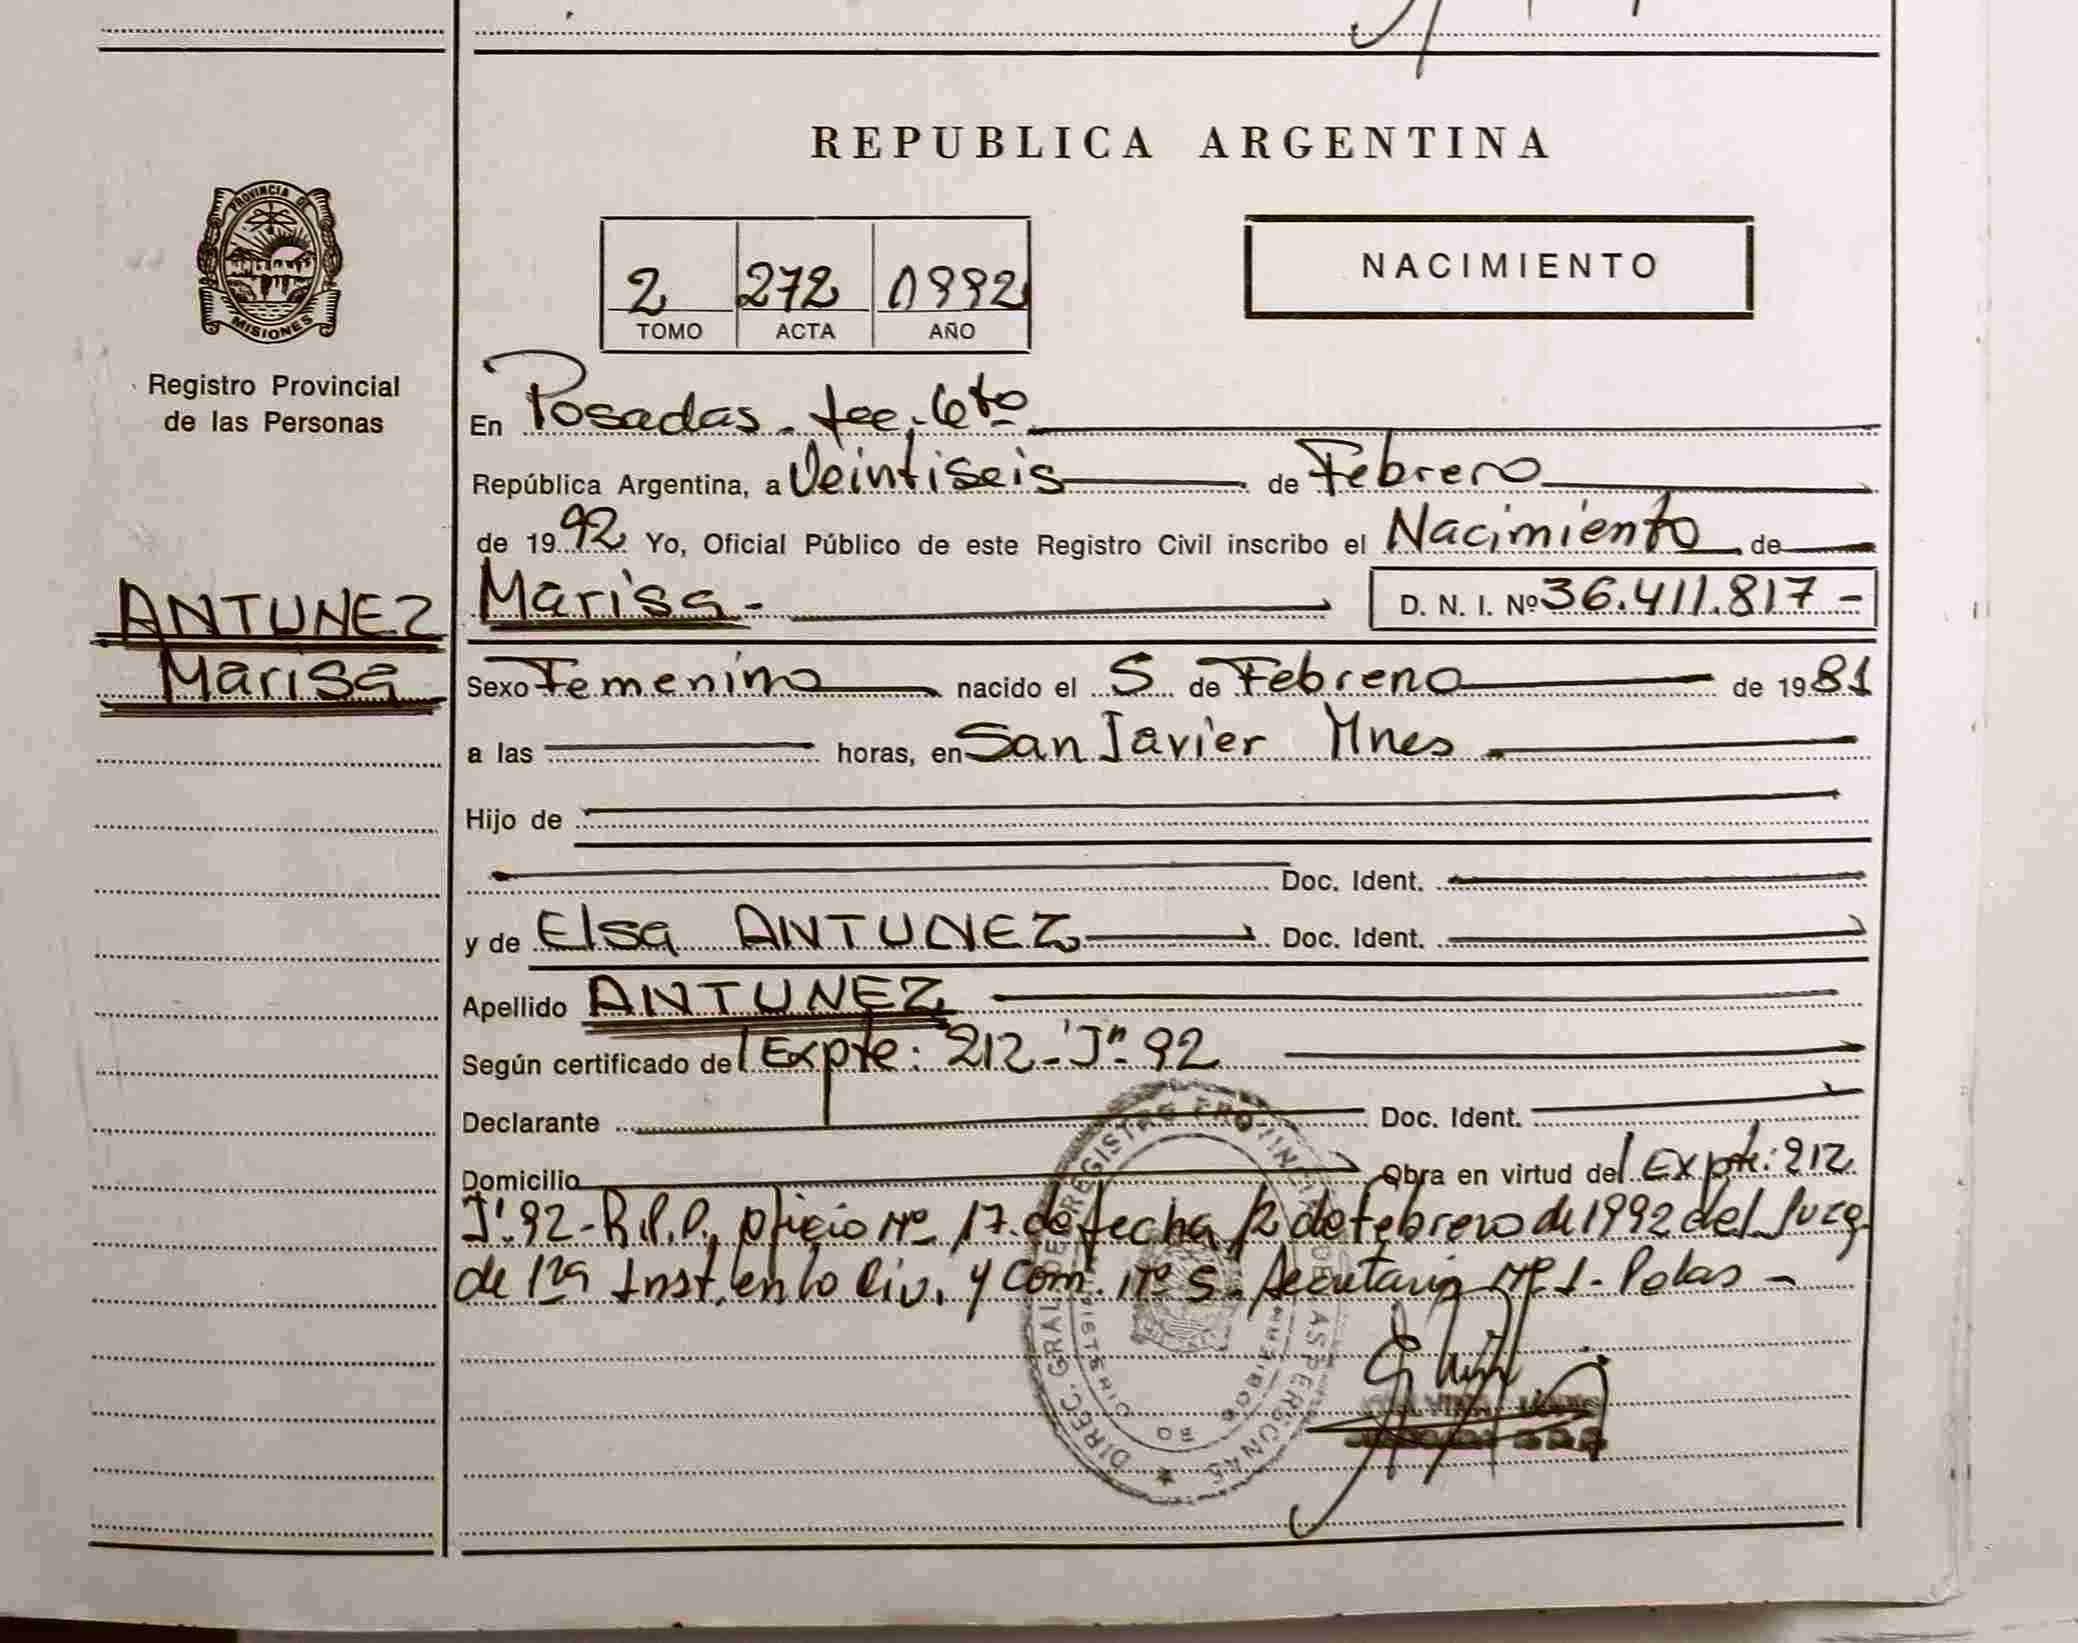 REPUBLICA ARGENTINA
PROVINCIA DE
MISIONES
Registro Provincial
de las Personas
2 272 1992
TOMO ACTA AÑO
NACIMIENTO
En Posadas - Dto.
República Argentina, a Veintiseis de Febrero
de 1992 Yo, Oficial Público de este Registro Civil inscribo el Nacimiento de
ANTUNEZ
Marisa
Marisa - D. N. I. Nº 36.411.817 -
Sexo Femenino nacido el 5 de Febrero de 1981
a las horas, en San Javier Mnes
Hijo de
Doc. Ident.
y de Elsa ANTUNEZ Doc. Ident.
Apellido ANTUNEZ
Según certificado del Expte: 212 - "J" - 92
Declarante Doc. Ident.
Domicilio Obra en virtud del Expte: 212
"J" 92 - R.P.P., oficio Nº 17 de fecha 12 de Febrero de 1992 del Juzg.
de 1ra Inst. en lo Civ. y Com. Nº 5 - Secretaria Nº 1 - Pdas -
DIREC. GRAL. DE REGISTRO PROVINCIAL DE LAS PERSONAS
MINISTERIO DE GOBIERNO